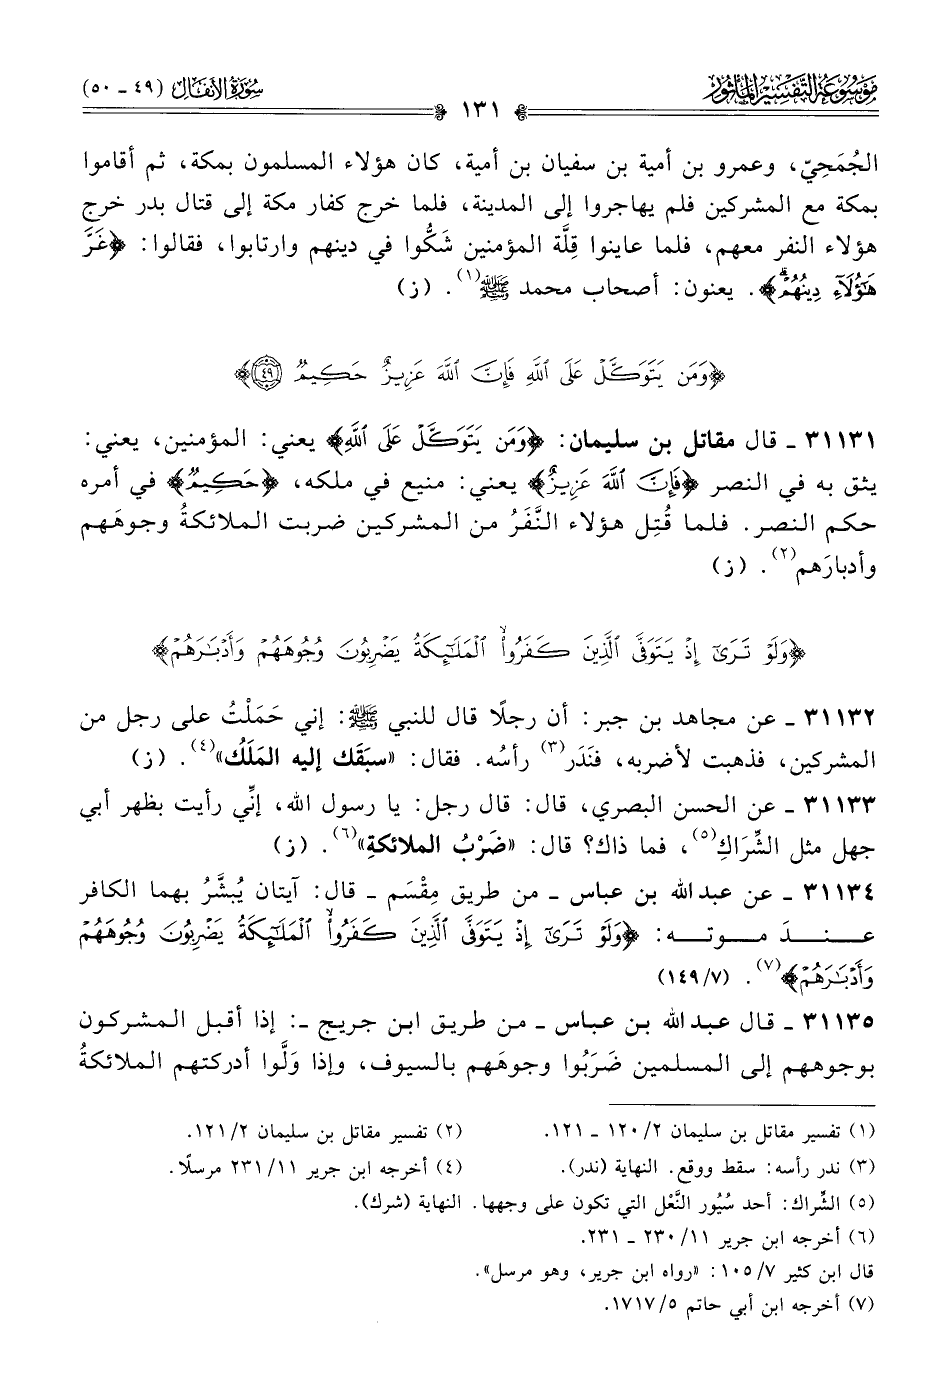 موسوعة التفسير المأثور
سورة الأنفال (٤٩ - ٥٠)
١٣١
الجُمَحِيّ، وعمرو بن أمية بن سفيان بن أمية، كان هؤلاء المسلمون بمكة، ثم أقاموا
بمكة مع المشركين فلم يهاجروا إلى المدينة، فلما خرج كفار مكة إلى قتال بدر خرج
هؤلاء النفر معهم، فلما عاينوا قِلَّة المؤمنين شَكُّوا في دينهم وارتابوا، فقالوا: ﴿غَرَّ
هَٰٓؤُلَآءِ دِينُهُمۡۗ﴾. يعنون: أصحاب محمد ﷺ(١). (ز)
﴿وَمَن يَتَوَكَّلۡ عَلَى ٱللَّهِ فَإِنَّ ٱللَّهَ عَزِيزٌ حَكِيمٌ ٤٩﴾
٣١١٣١ ـ قال مقاتل بن سليمان: ﴿وَمَن يَتَوَكَّلۡ عَلَى ٱللَّهِ﴾ يعني: المؤمنين، يعني:
يثق به في النصر ﴿فَإِنَّ ٱللَّهَ عَزِيزٌ﴾ يعني: منيع في ملكه، ﴿حَكِيمٌ﴾ في أمره
حكم النصر. فلما قُتِل هؤلاء النَّفَرُ من المشركين ضربت الملائكةُ وجوهَهم
وأدبارَهم(٢). (ز)
﴿وَلَوۡ تَرَىٰٓ إِذۡ يَتَوَفَّى ٱلَّذِينَ كَفَرُواْۙ ٱلۡمَلَٰٓئِكَةُ يَضۡرِبُونَ وُجُوهَهُمۡ وَأَدۡبَٰرَهُمۡ﴾
٣١١٣٢ ـ عن مجاهد بن جبر: أن رجلًا قال للنبي ﷺ: إني حَمَلْتُ على رجل من
المشركين، فذهبت لأضربه، فنَدَر(٣) رأسُه. فقال: «سبَقَك إليه المَلَك»(٤). (ز)
٣١١٣٣ ـ عن الحسن البصري، قال: قال رجل: يا رسول الله، إنِّي رأيت بظهر أبي
جهل مثل الشِّرَاكِ(٥)، فما ذاك؟ قال: «ضَرْبُ الملائكةِ»(٦). (ز)
٣١١٣٤ ـ عن عبد الله بن عباس ـ من طريق مِقْسَم ـ قال: آيتان يُبشَّرُ بهما الكافر
عند موته: ﴿وَلَوۡ تَرَىٰٓ إِذۡ يَتَوَفَّى ٱلَّذِينَ كَفَرُواْۙ ٱلۡمَلَٰٓئِكَةُ يَضۡرِبُونَ وُجُوهَهُمۡ
وَأَدۡبَٰرَهُمۡ﴾(٧). (١٤٩/٧)
٣١١٣٥ ـ قال عبد الله بن عباس ـ من طريق ابن جريج ـ: إذا أقبل المشركون
بوجوههم إلى المسلمين ضَرَبُوا وجوهَهم بالسيوف، وإذا وَلَّوا أدركتهم الملائكةُ
(١) تفسير مقاتل بن سليمان ١٢٠/٢ ـ ١٢١.
(٢) تفسير مقاتل بن سليمان ١٢١/٢.
(٣) ندر رأسه: سقط ووقع. النهاية (ندر).
(٤) أخرجه ابن جرير ٢٣١/١١ مرسلًا.
(٥) الشِّراك: أحد سُيُور النَّعْل التي تكون على وجهها. النهاية (شرك).
(٦) أخرجه ابن جرير ٢٣٠/١١ ـ ٢٣١.
قال ابن كثير ١٠٥/٧: «رواه ابن جرير، وهو مرسل».
(٧) أخرجه ابن أبي حاتم ١٧١٧/٥.